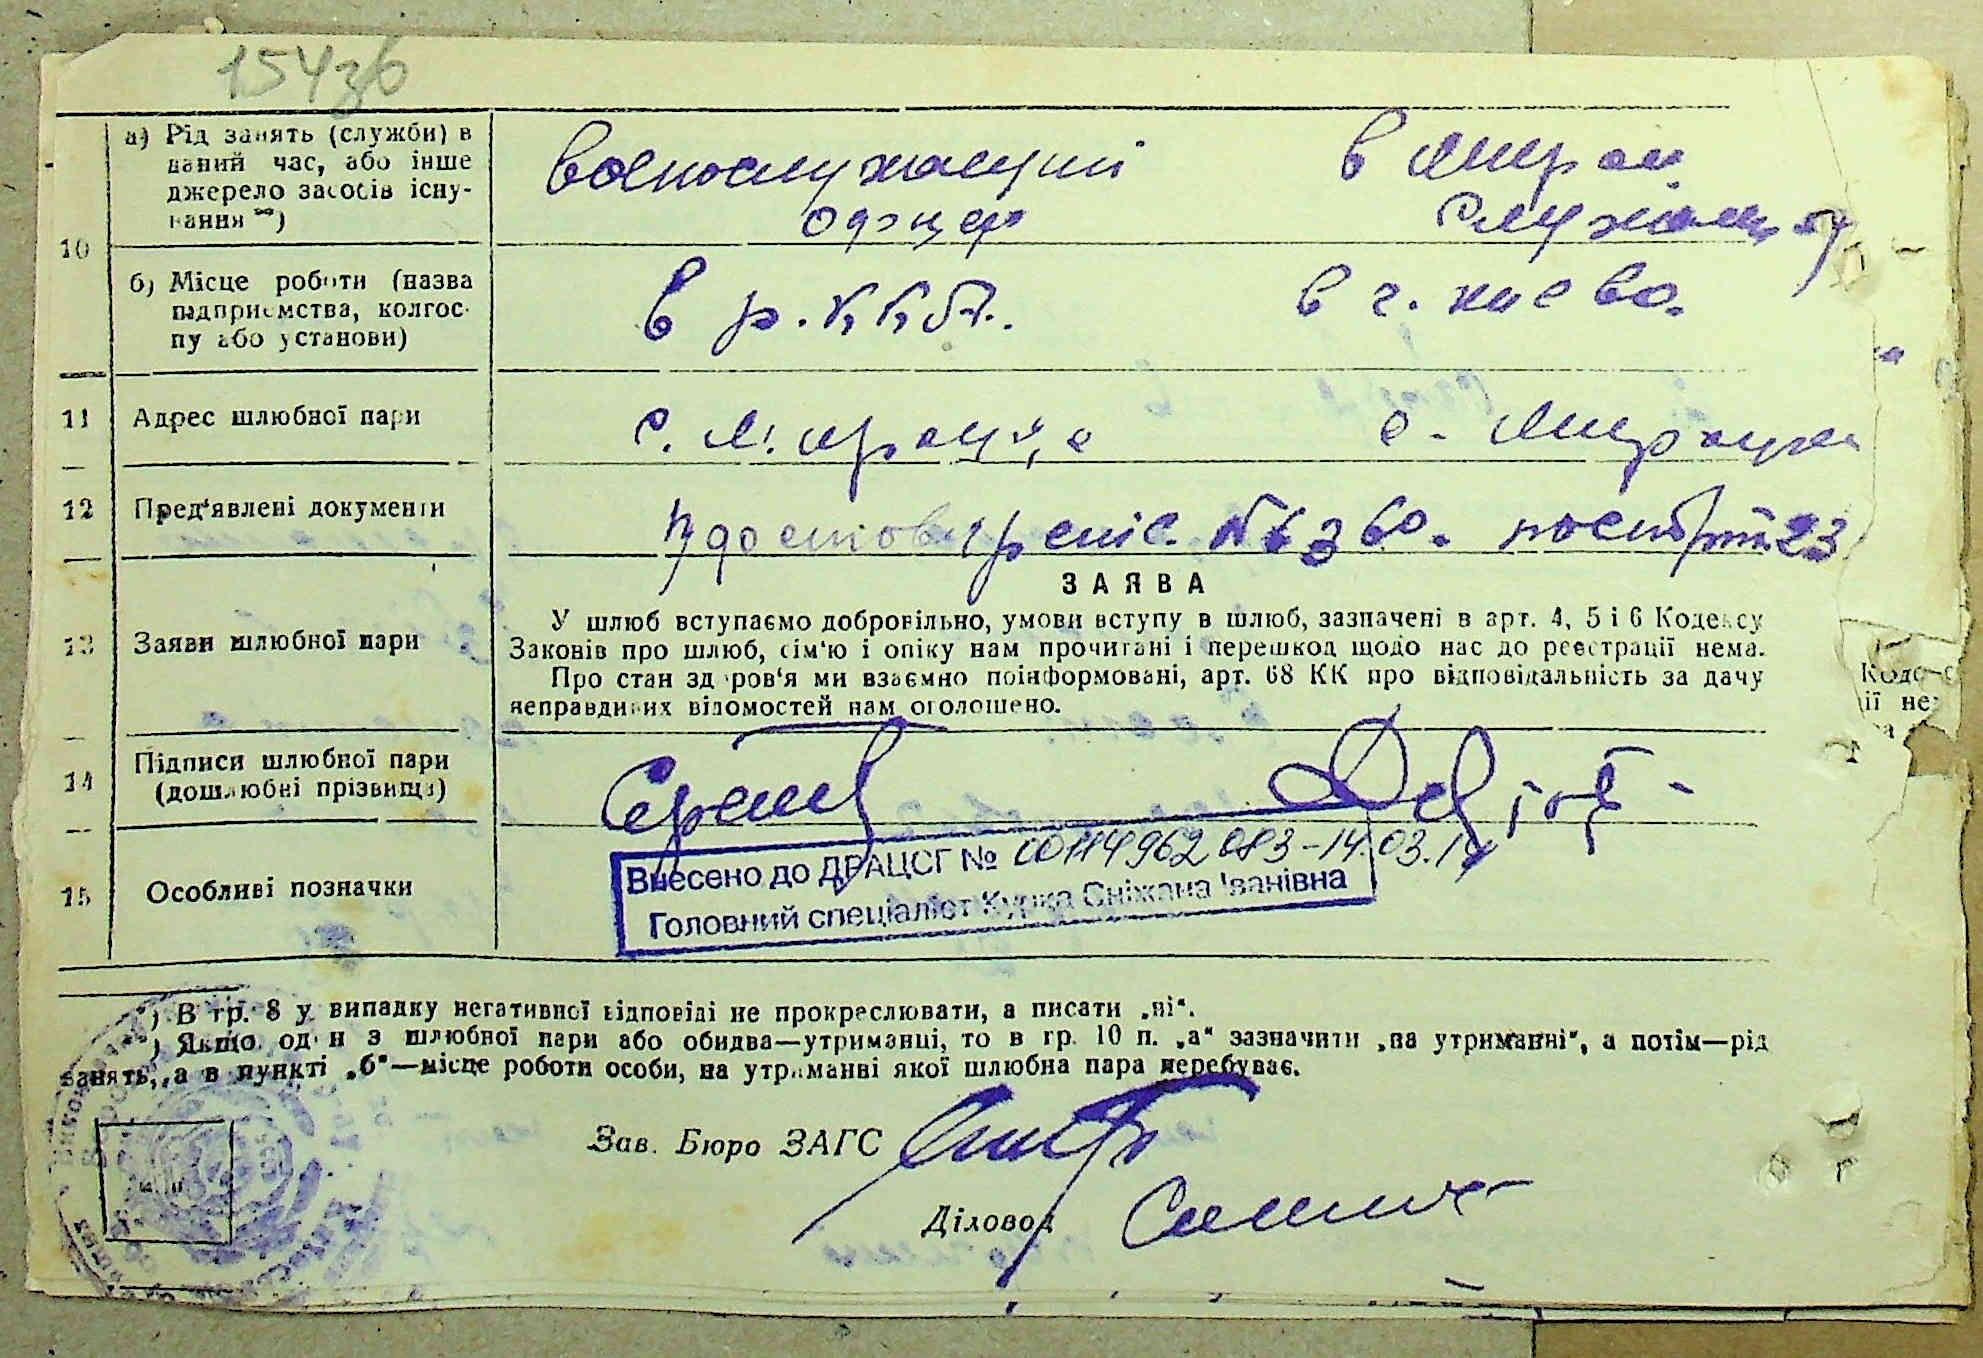 154зв
10
а) Рід занять (служби) в даний час, або інше джерело засобів існування **)
военослужащий
офицер
в
служащая
б) Місце роботи (назва підприємства, колгоспу або установи)
в р.ККА.
в г. киево.
11 Адрес шлюбної пари
с.
с.
12 Пред'явлені документи
№ 6360.
23
13 Заяви шлюбної пари
ЗАЯВА
У шлюб вступаємо добровільно, умови вступу в шлюб, зазначені в арт. 4, 5 і 6 Кодексу
Законів про шлюб, сім'ю і опіку нам прочитані і перешкод щодо нас до реєстрації нема.
Про стан здоров'я ми взаємно поінформовані, арт. 68 КК про відповідальність за дачу
неправдивих відомостей нам оголошено.
14 Підписи шлюбної пари
(дошлюбні прізвища)
15 Особливі позначки
Внесено до ДРАЦСГ № 00114962083-14.03.14
Головний спеціаліст Курка Сніжана Іванівна
*) В гр. 8 у випадку негативної відповіді не прокреслювати, а писати „ні“.
**) Якщо один з шлюбної пари або обидва—утриманці, то в гр. 10 п. „а“ зазначити „на утриманні“, а потім—рід
занять, а в пункті „б“—місце роботи особи, на утриманні якої шлюбна пара перебуває.
Зав. Бюро ЗАГС
Діловод